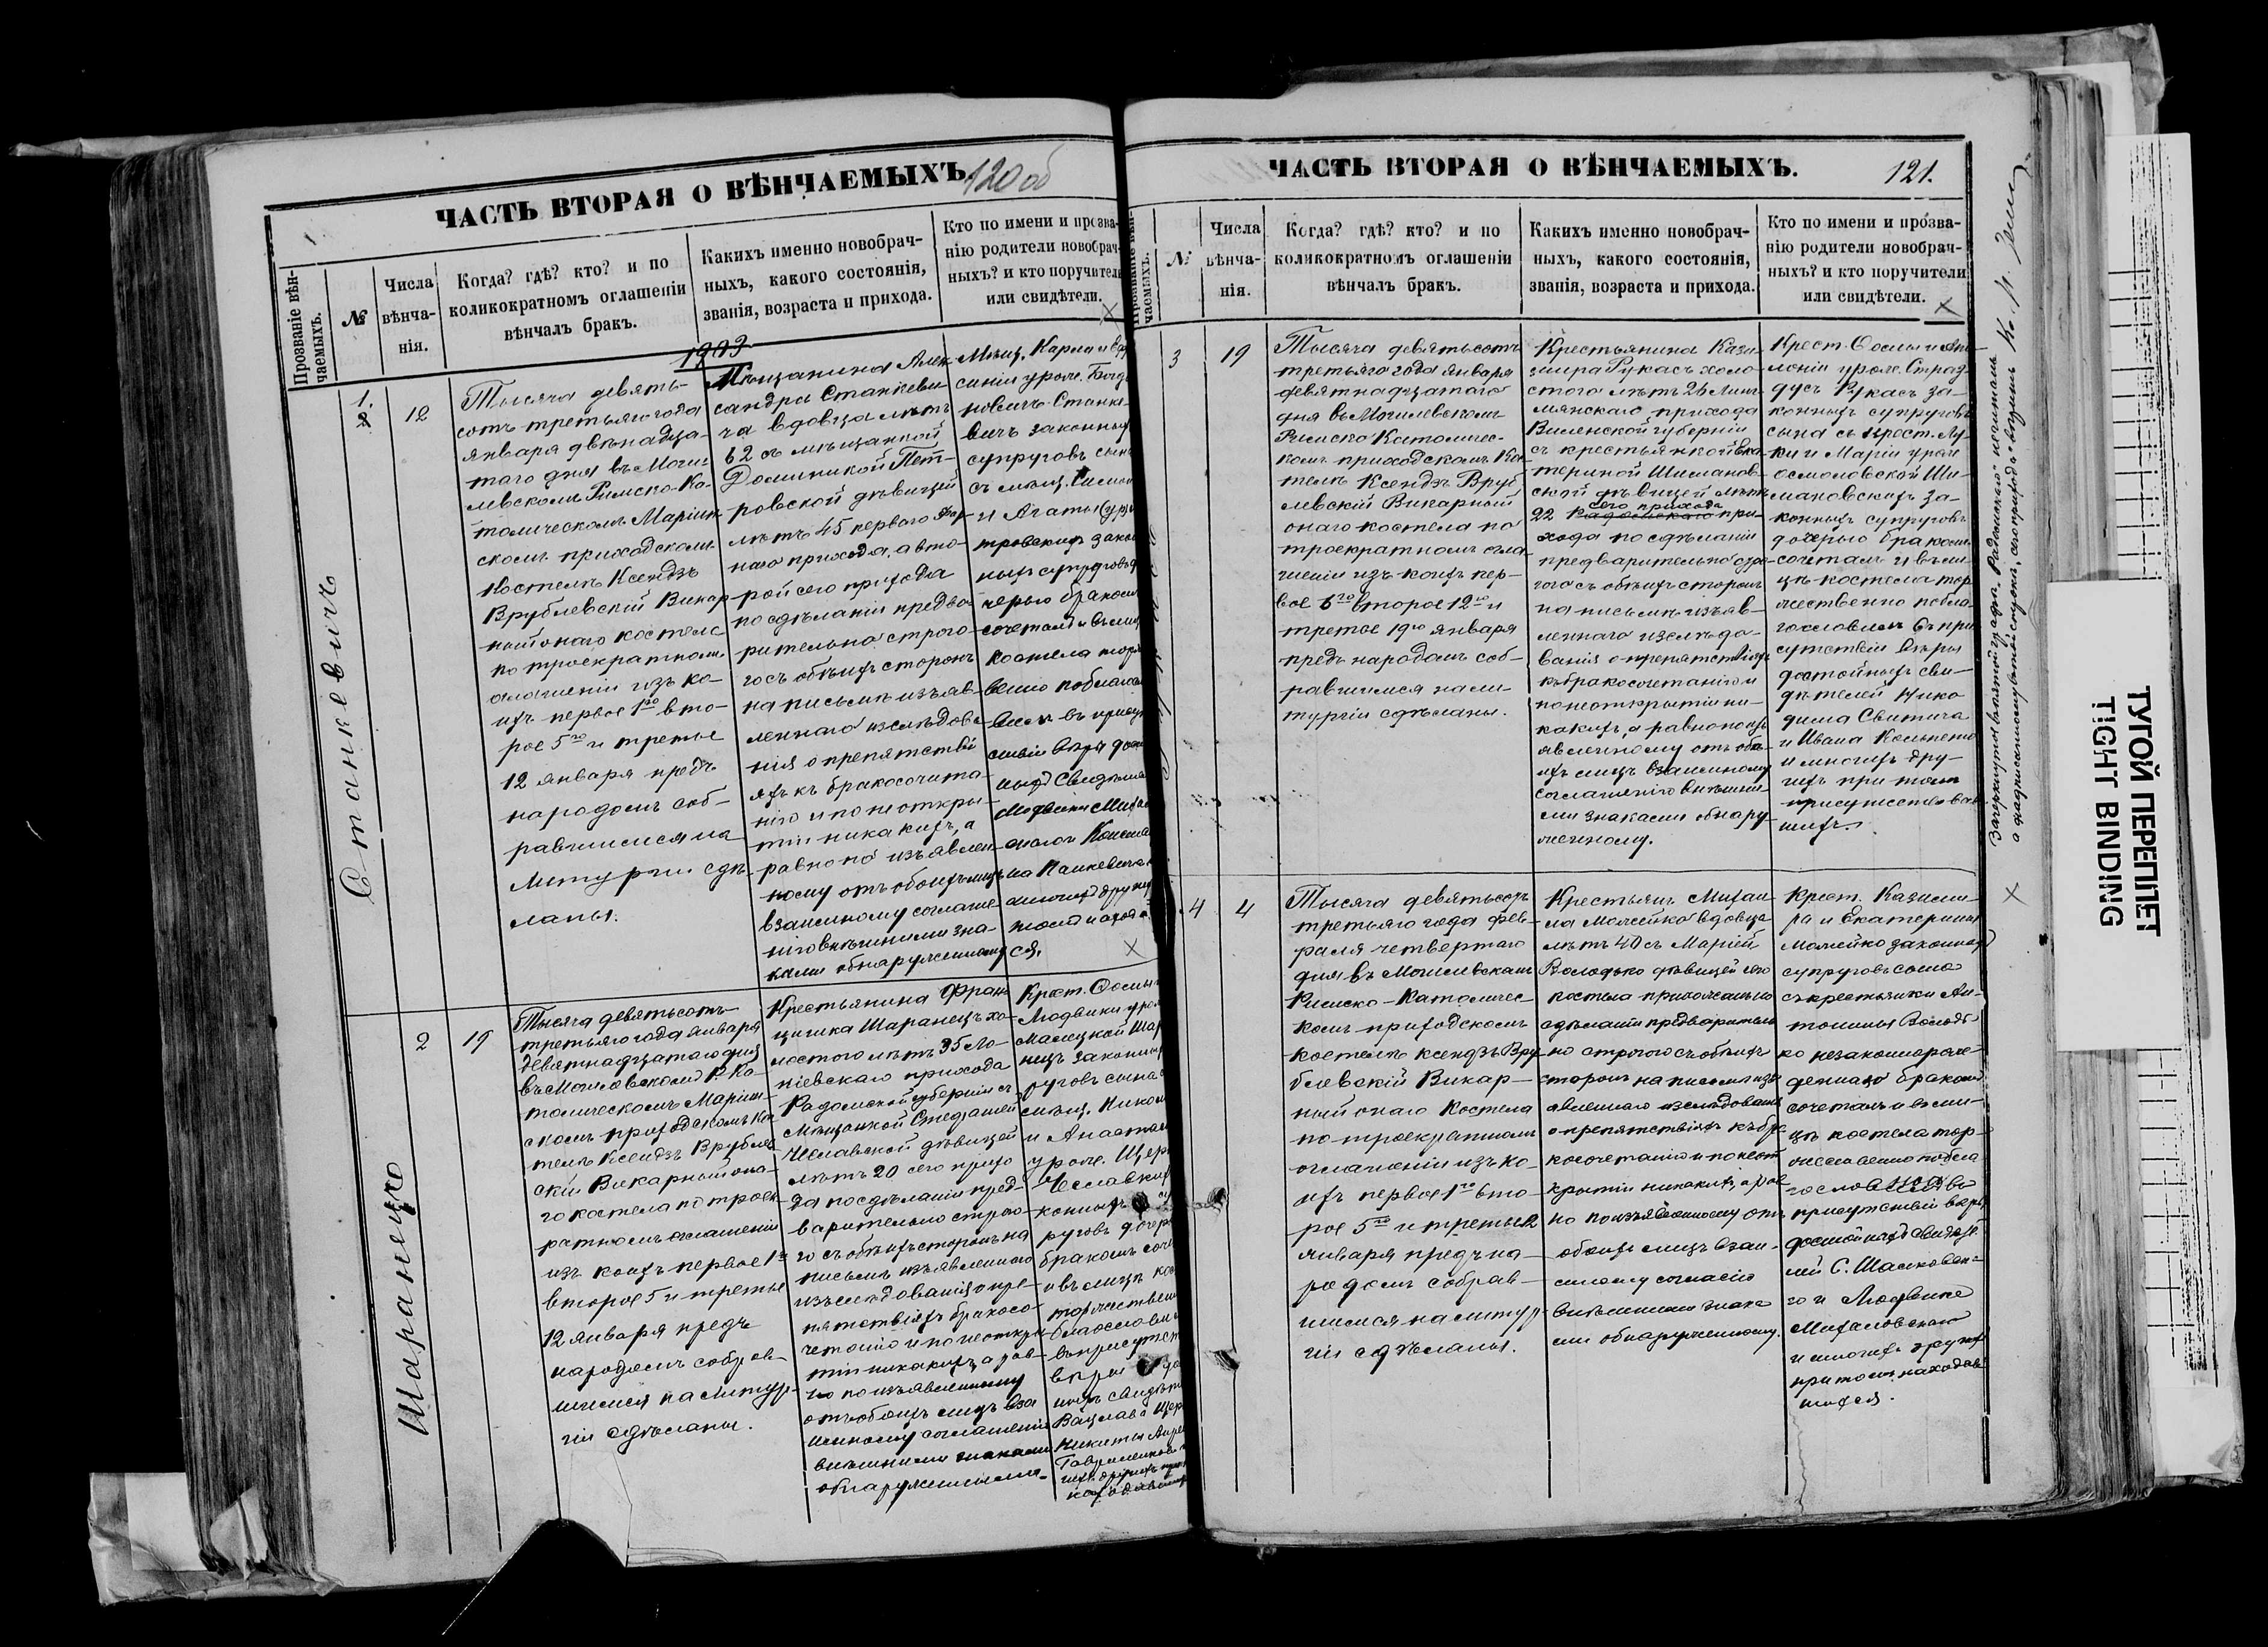 ЧАСТЬ ВТОРАЯ О ВѢНЧАЕМЫХЪ.
120 об
Прозваніе вѣн-
чаемыхъ.
№
Числа
вѣнча-
нія.
Когда? гдѣ? кто? и по
коликократномъ оглашеніи
вѣнчалъ бракъ.
Какихъ именно новобрач-
ныхъ, какого состоянія,
званія, возраста и прихода.
Кто по имени и прозва-
нію родители новобрач-
ныхъ? и кто поручители
или свидѣтели.
1903
Станкевичъ
1.
12
Тысяча девять-
сотъ третьяго года
января двѣнадца-
таго дня въ Моги-
левскомъ Римско-Ка-
толическомъ Маріин-
скомъ приходскомъ
костелѣ Ксендзъ
Врублевскій Викар-
ный онаго костела
по троекратномъ
оглашеніи изъ ко-
ихъ первое 1го вто-
рое 5го и третье
12 января предъ
народомъ соб-
равшимся на
Литургіи сдѣ-
ланы.
Мѣщанина Алек-
сандра Станкеви-
ча вдовца лѣтъ
62 съ мѣщанкой
Доминикой Пет-
ровской дѣвицей
лѣтъ 45 первого
наго прихода, а вто-
рой сего прихода
по сдѣланіи предва-
рительно строго-
го съ обѣихъ сторонъ
на письмѣ изъяв-
леннаго изслѣдова-
нія о препятстві-
яхъ къ бракосочета-
нію и по неоткры-
тіи никакихъ, а
равно по изъявлен-
ному отъ обоихъ лицъ
взаимному согласе-
нію внѣшними зна-
ками обнаруженному
Мѣщ. Карла и
синіи урож. Богда-
новичъ Станке-
вичъ законныхъ
супруговъ сына
съ мѣщ.
и Агаты
тровскихъ закон-
ныхъ супруговъ до-
черью бракомъ
сочеталъ и въ лицѣ
костела торже-
венно поблагос-
вилъ въ присут-
ствіи вѣры достой-
ныхъ Свидѣтелей
Людвика
ся.
Шаранецъ
2
19
Тысяча девятьсотъ
третьяго года января
девятнадцатаго дня
въ Могилевскомъ Р. Ка-
толическомъ Маріин-
скомъ приходскомъ ко-
телѣ Ксендзъ Врублев-
скій Викарный она-
го костела по троек-
ратномъ оглашеніи
изъ коихъ первое 1го
второе 5 и третье
12 января предъ
народомъ собрав-
шимся на Литур-
гіи сдѣланы.
Крестьянина Фран-
цишка Шаранецъ хо-
лостого лѣтъ 35
ніевскаго прихода
Радомской губерніи съ
Мѣщанкой Стефаніей
Чеславской дѣвицей
лѣтъ 20 сего прихо-
да по сдѣланіи пред-
варительно строго-
го съ обѣихъ сторонъ на
письмѣ изъявленнаго
изслѣдованія о пре-
пятствіяхъ бракосо-
четанію и по неоткры-
тіи никакихъ, а рав-
но по изъявленному
отъ обоихъ лицъ вза-
имному соглашенію
внѣшними знаками
обнаруженному.
Крест. Осипа
Людвики урож.
Малецкой
законныхъ
руговъ сына
съ мѣщ.
и Анастасіи
урож.
Чеславскихъ
конныхъ
руговъ дочерью
бракомъ соче-
и въ лицѣ кос-
торжественно
благословилъ
въ присутст-
вѣры
ныхъ свидѣте-
Вацлава
Никиты
ЧАСТЬ ВТОРАЯ О ВѢНЧАЕМЫХЪ.
121.
чаемыхъ.
№
Числа
вѣнча-
нія.
Когда? гдѣ? кто? и по
коликократномъ оглашеніи
вѣнчалъ бракъ.
Какихъ именно новобрач-
ныхъ, какого состоянія,
званія, возраста и прихода.
Кто по имени и прозва-
нію родители новобрач-
ныхъ? и кто поручители
или свидѣтели.
3
19
Тысяча девятьсотъ
третьяго года января
девятнадцатаго
дня въ Могилевскомъ
Римско Католичес-
комъ приходскомъ Кос-
телѣ Ксендзъ Вруб-
левскій Викарный
онаго костела по
троекратномъ огла-
шеніи изъ коихъ пер-
вое 6го второе 12го и
третье 19го января
предъ народомъ соб-
равшимся на ли-
тургіи сдѣланы.
Крестьянина Кази-
міра Рукасъ холо-
стого лѣтъ 26
мянскаго прихода
Виленской губерніи
съ крестьянкой Ека-
териной Шиманов-
ской дѣвицей лѣтъ
сего прихода
22 Радомскаго при-
хода по сдѣланіи
предварительно стро-
гого съ обѣихъ сторонъ
на письмѣ изъяв-
леннаго изслѣдо-
ванія о препятствіяхъ
къ бракосочетанію и
по неоткрытіи ни-
какихъ, а равно по изъ-
явленному отъ обо-
ихъ лицъ взаимному
соглашенію внѣшни-
ми знаками обнару-
женному.
Крест. Осипа и Апо-
лоніи урож. Страз-
дусъ Рукасъ за-
конныхъ супруговъ
сына съ крест. Лу-
ки и Маріи урож
Осмоловской Ши-
мановскихъ за-
конныхъ супруговъ
дочерью бракомъ
сочеталъ и въ ли-
цѣ костела тор-
жественно побла-
гословилъ въ при-
сутствіи вѣры
достойныхъ сви-
дѣтелей Нико-
дима Свитича
и Ивана
и многихъ дру-
гихъ при томъ
присутствовав-
шихъ.
4
4
Тысяча девятьсотъ
третьяго года фев-
раля четвертаго
дня въ Могилевскомъ
Римско-Католичес-
комъ приходскомъ
костелѣ ксендзъ Вру-
блевскій Викар-
ный онаго костела
по троекратномъ
оглашеніи изъ ко-
ихъ первое 1го вто-
рое 5го и третье 12
января предъ на-
родомъ собрав-
шимся на литур-
гіи сдѣланы.
Крестьян. Михаи-
ла Малейко вдовца
лѣтъ 40 съ Маріей
Володько дѣвицей сего
костела прихожанъ по
сдѣланіи предваритель-
но строгого съ обѣихъ
сторонъ на письмѣ изъ-
явленнаго изслѣдованія
о препятствіяхъ къ бра-
косочетанію и по неот-
крытіи никакихъ, а рав-
но по изъявленному отъ
обоихъ лицъ взаи-
мному согласію
внѣшними знака-
ми обнаруженному.
Крест. Казими-
ра и Екатерины
Малейко законныхъ
супруговъ сына
съ крестьянки Ан-
тонины Володь-
ко незаконнорож-
денную бракомъ
сочеталъ и въ ли-
цѣ костела тор-
жественно побла-
гословилъ въ
присутствіи вѣры
достойныхъ свидѣте-
лей С. Шимковска-
го и Людвика
Михаловскаго
и многихъ другихъ
при томъ находив-
шихся.
ТУГОЙ ПЕРЕПЛЕТ
TIGHT BINDING